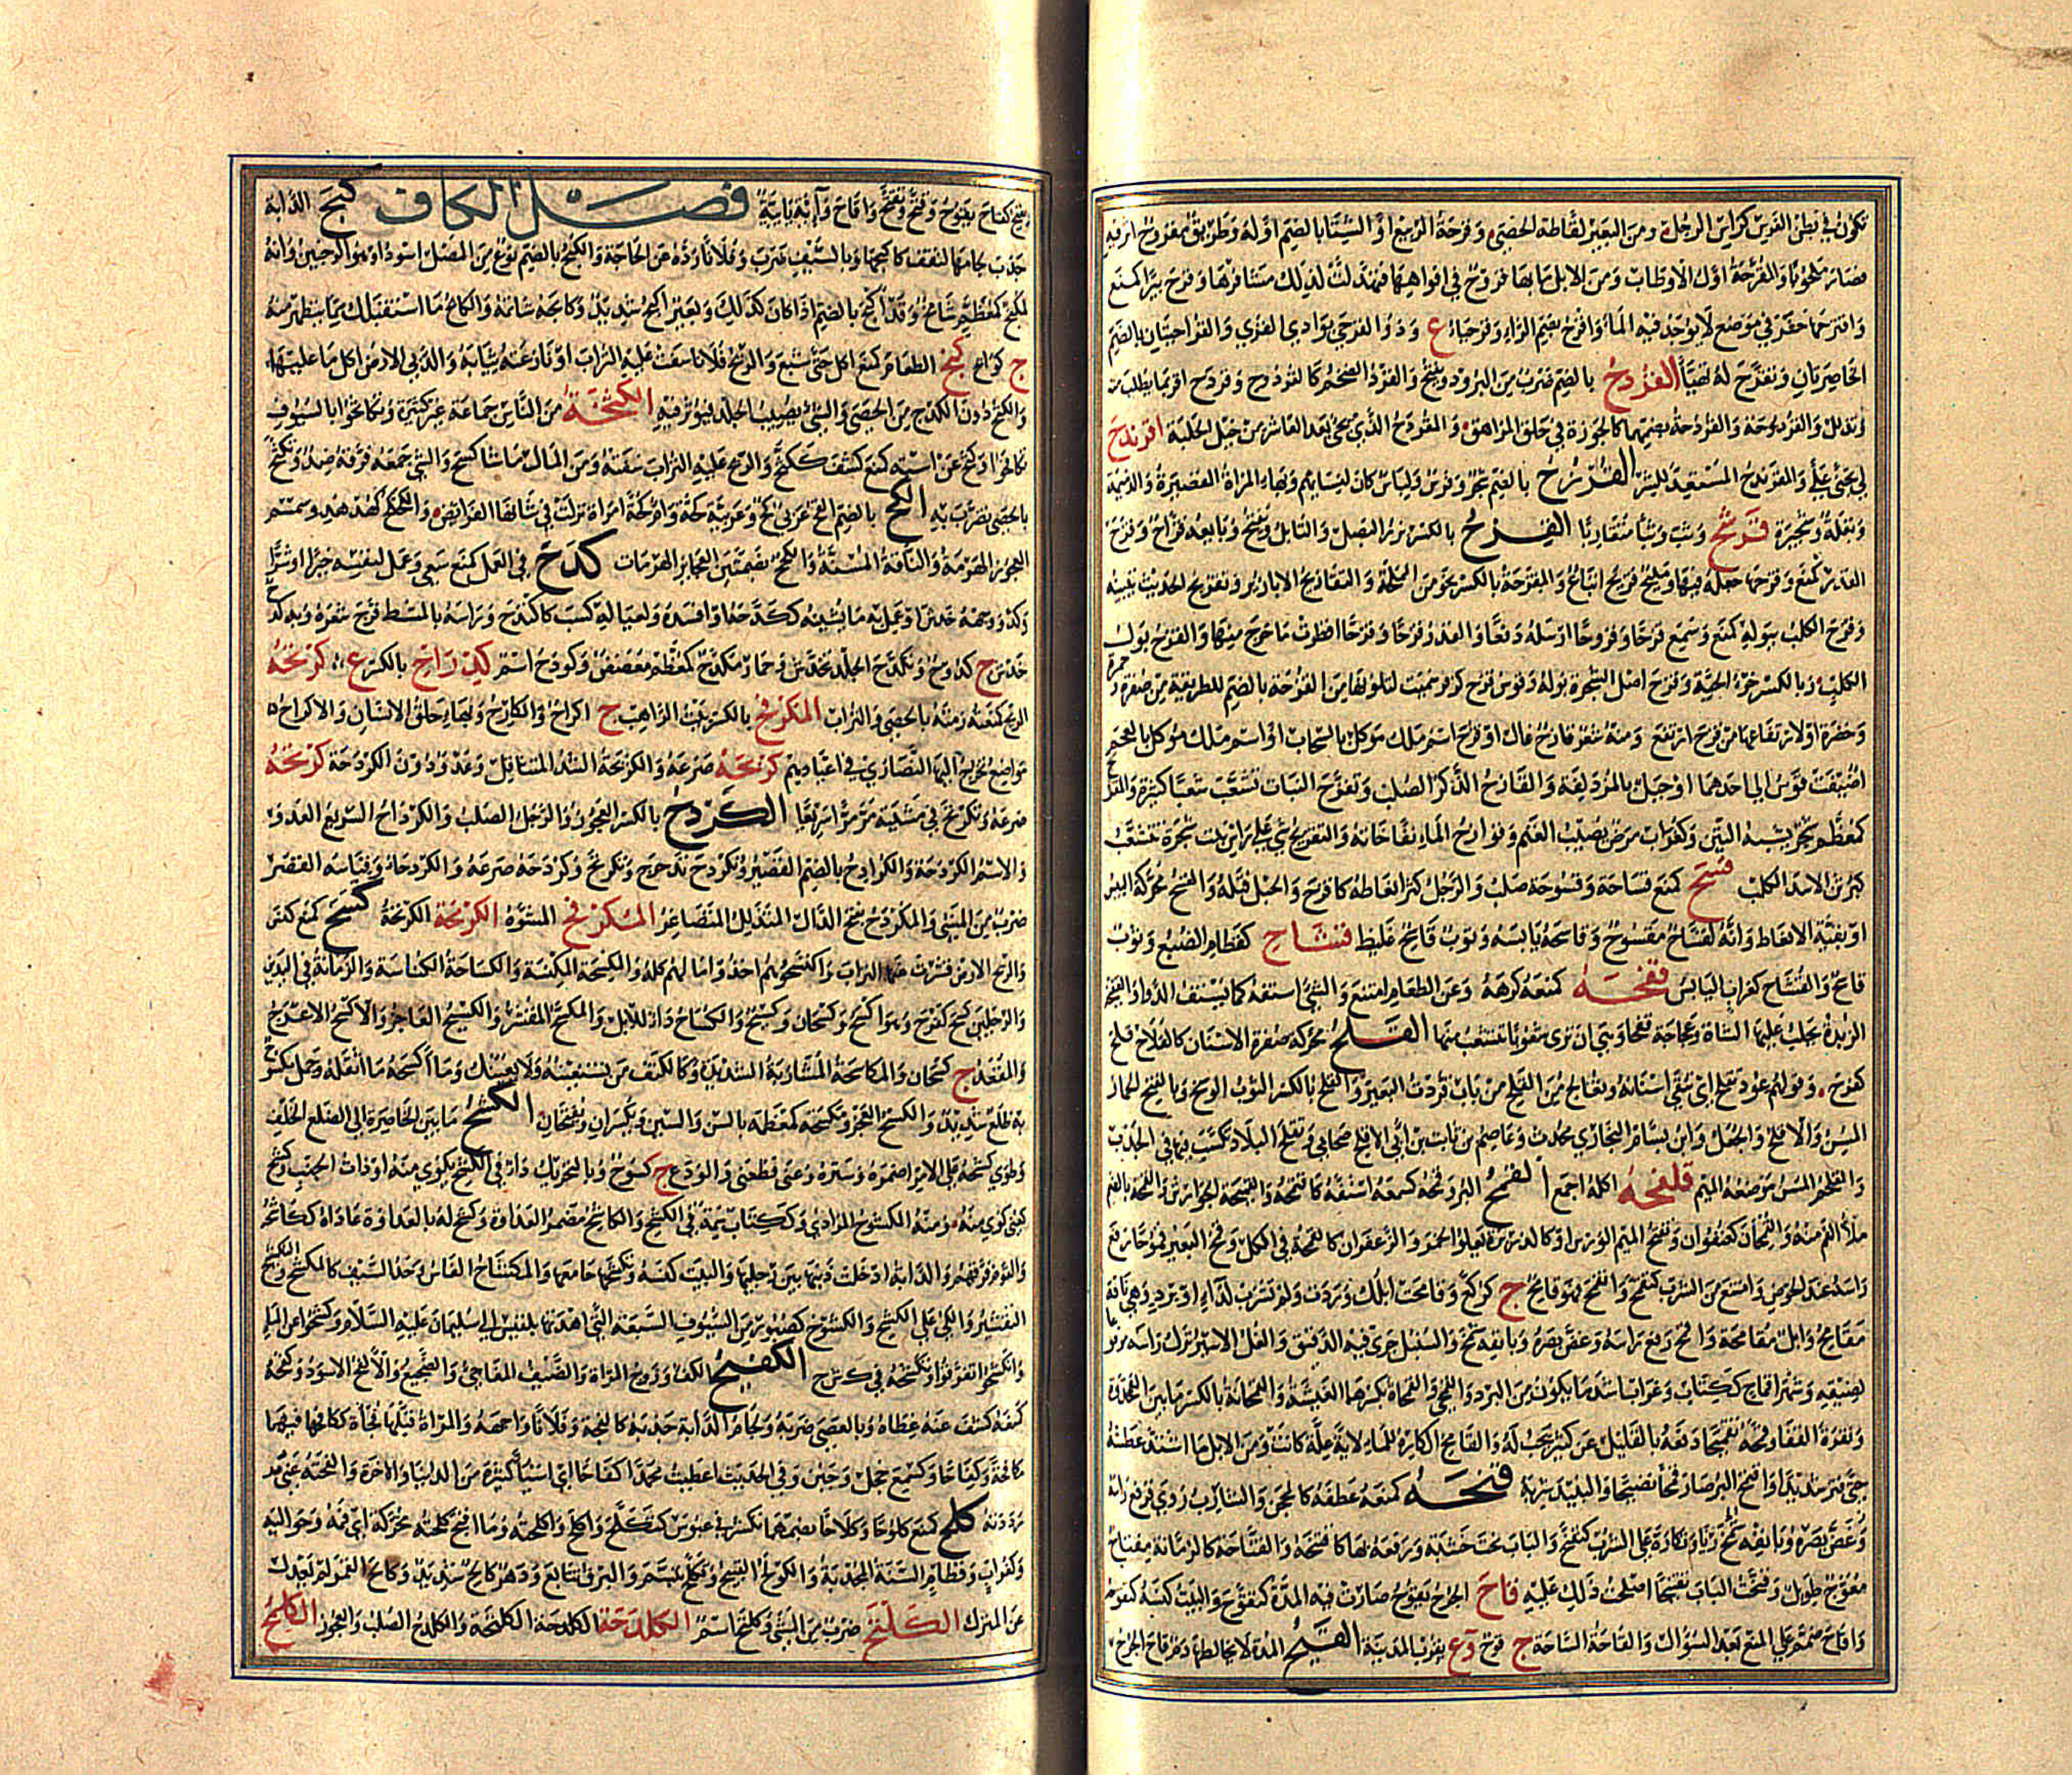 تكون في بطن الفرس كراس الرجل ومن البعير لقاطة الحصى وقرحة الربيع او الشتا بالضم اوله وطريق مقروح اثر فيه
فصار ملحوبا والقرحة اول الاوطاب ومن الابل ما بها قروح في افواهها فتهدلت لذلك مشافرها وقرح بيرا كمنع
واقترحها حفر في موضع لا يوجد فيه الماء واقرح بضم الراء وقرحياء ع وذو القرحى بوادي القرى والقراحيتان بالضم
الخاصرتان وتقرح له تهيا القردح بالضم ضرب من البرود ويفتح والقرد الضخم كالقردوح وقردح اقر بما يطلب منه
وتذلل والقردوحة والقردحة بضمهما كالجوزة في حلق المراهق والمقردح الذي يجئ بعد العاشر من خيل الحلبة اقرندح
لي تجنى علي والمقرندح المستعد للشر القرزح بالضم شجر وفرس ولباس كان لنسايهم وبهاء المراة القصيرة والدميمة
وبقلة وشجيرة قرشح وثب وثبا متقاربا القزح بالكسر بزر البصل والتابل ويفتح وبايعه قزاح وقزح
القدر كمنع وقزحها جعله فيها ومليح قزيح اتباع والمقزحة بالكسر نحو من المملحة والتقازيح الابازير وتقزيح الحديث تزيينه
وقزح الكلب ببوله كمنع وسمع قزحا وقزوحا ارسله دفعا والقدر قزحا وقزحانا اقطرت ما خرج منها والقزح بول
الكلب وبالكسر خرء الحية وقزح اصل الشجرة بوله وقوس قزح كزفر سميت لتلونها من القزحة بالضم للطريقة من صفرة وحمرة
وخضرة او لارتفاعها من قزح ارتفع ومنه سعر قازح غال او قزح اسم ملك موكل بالسحاب او اسم ملك من ملوك العجم
اضيفت قوس الى احدهما او جبل بالمزدلفة والقازح الذكر الصلب وتقزح النبات تشعب شعبا كثيرة والمقزح
كمعظم شجر يشبه التين وكغراب مرض يصيب الغنم وقوازح الماء نفاخاته والتقزيح شئ على راس نبت او شجرة يتشعب
كبرثن الاسد الكلب قسح كمنع قساحة وقسوحة صلب والرجل كثر انعاظه كاقزح والحبل فتله والقسح محركة اليبس
او بقية الانعاظ وانه لقساح مقسوح وقاسحه يابسه وثوب قاسح غليظ قشاح كقطام الضبع وثوب
قاشح والقشاح كغراب اليابس قفحه كمنعه كرهه وعن الطعام امتنع والشئ استفه كما يستف الدواء والقفيحة
الزبدة تحلب عليها الشاة وعجاجة قفحاء وهي ان ترى شعوبا تتشعب منها القلح محركة صفرة الاسنان كالقلاح قلح
كفرح وقولهم عود تقلح اي تنقى اسنانه وتعالج من القلح من باب قردت البعير والقلح بالكسر الثوب الوسخ وبالفتح الحمار
المسن والاقلح الجعل وابن بسام البخاري محدث وعاصم بن ثابت بن ابي الاقلح صحابي وتقلح البلاد تكسب فيها في الجدب
والقلحم المسن موضعه الميم قلفحه اكله اجمع القمح البر وقمحه كسمعه استفه كاقتمحه والقميحة الجوارش والقمحة بالضم
ملء الفم منه والقمحان كعنفوان وتفتح الميم الورس او كالذريرة تعلو الخمر والزعفران كالقمحة في الكل وقمح البعير قموحا رفع
راسه عند الحوض وامتنع من الشرب كتقمح وانقمح فهو قامح ج كركع وقامحت ابلك وردت ولم تشرب لداء او برد وهي ناقة
مقامح وابل مقامحة واقمح رفع راسه وغض بصره وبانفه شمخ والسنبل جرى فيه الدقيق والغل الاسير ترك راسه مرفوعا
لضيقه وشهرا قماح ككتاب وغراب اشد ما يكون من البرد والقمحى والقمحاة بكسرهما الفيشة والقمحانة بالكسر ما بين القمحدوة
ونقرة القفا وقمحه تقميحا دفعه بالقليل عن كثير يجب له والقامح الكاره للماء لاية علة كانت ومن الابل ما اشتد عطشه
حتى فتر شديدا واقتمح البر صار قمحا نضيجا والنبيذ شربه قنحه كمنعه عطفه كالمحجن والشارب روي فرفع راسه
وغض بصره وبانفه شمخ ريا وتكاره على الشرب كتقنح والباب نحت خشبة ورفعه بها كاقنحه والقناحة كالرمانة مفتاح
معوج طويل وقنحت الباب تقنيحا اصلحت ذلك عليه قاح الجرح يقوح صارت فيه المدة كتقوح والبيت كنسه كقوحه
واقاح صمم على المنع بعد السؤال والقاحة الساحة ج قوح وع بقرب المدينة القيح المدة لا يخالطها دم قاح الجرح
يقيح كقاح يقوح وقيح وتقيح واقاح وا فصل الكاف كبح الدابة
جذب لجامها لتقف كاكبحها وبالسيف ضرب وفلانا رده عن الحاجة والكبح بالضم نوع من المصل اسود او هو الرخبين وانه
لمكبح كمعظم شامخ وقد اكبح بالضم اذا كان كذلك وبعير اكبح شديد وكابحه شاتمه والكابح ما استقبلك مما يتطير منه
ج كوابح كتح الطعام كمنع اكل حتى شبع والريح فلانا سفت عليه التراب او نازعته ثيابه والدبى الارض اكل ما عليها
والكتح دون الكدح من الحصى والشئ يصيب الجلد فيؤثر فيه الكثحة من الناس جماعة غير كثيرة وتكاثحوا بالسيوف
تكافحوا وكثح عن استه كمنع كشف ككثح والريح عليه التراب سفته ومن المال ما شا كسح والشئ جمعه وفرقه ضد وتكثح
بالحصى تضرب به الكح بالضم القح عربي كح وعربية كحة وام كحة امراة نزلت في شانها الفرائض والكحكح كهدهد وسمسم
العجوز الهرمة والناقة المسنة والكحح بضمتين العجائز الهرمات كدح في العمل كمنع سعى وعمل لنفسه خيرا او شرا
وكد ووجهه خدش او عمل به ما يشينه ككدحه او افسده ولعياله كسب كاكتدح وراسه بالمشط فرج شعره وبه كدح
خدش ج كدوح وتكدح الجلد تخدش وحمار مكدح كمعظم معضض وكودح اسم كدراح بالكسر ع كذحته
الريح كمنعته رمته بالحصى والتراب الكرح بالكسر بيت الراهب ج اكراح والكارح وبهاء حلق الانسان والاكيراح
مواضع تخرج اليها النصارى في اعيادهم كربحه صرعه والكربحة الشد المتثاقل وعدو دون الكردحة كرتحه
صرعه وتكرتح في مشيته مر مرا سريعا الكردح بالكسر العجوز والرجل الصلب والكرداح السريع العدو
والاسم الكردحة والكرادح بالضم القصير وتكردح تدحرج وتكرتح وكردحه صرعه والكردحاء وقياسه القصر
ضرب من المشي والمكردح بفتح الدال المتذلل المتصاغر المكرفح المشوه الكرمحة الكربحة كسح كمنع كنس
والريح الارض قشرت عنها التراب واكتسحوهم اخذوا مالهم كله والمكسحة المكنسة والكساحة الكناسة والزمانة في اليدين
والرجلين كسح كفرح وهو اكسح وكسحان وكسيح والكساح داء للابل والمكسح المقشر والكسيح العاجز والاكسح الاعرج
والمقعد ج كسحان والمكاسحة المشاربة الشديدة وكالكتف من تستعينه ولا يعينك وما اكسحه ما اثقله وجمل مكسوح
به ظلع شديد والكسح العجز ومكسحة كمعظمة بالسن والسين ويكسران ويفتحان الكشح ما بين الخاصرة الى الضلع الخلف
وطوى كشحه على الامر اضمره وستره وعني قطعني والودع ج كشوح وبالتحريك داء في الكشح يكوى منه او ذات الجنب وكشح
كعني كوي منه ومنه المكشوح المرادي وككتاب سمة في الكشح والكاشح مضمر العداوة وكشح له بالعداوة عاداه ككاشحه
والقوم فرقهم والدابة ادخلت ذنبها بين رجليها والبيت كنسه وتكشحها جامعها والمكشاح الفاس وحد السيف كالمكشح والتكشيح
التقشير والكي على الكشح والكشوح كصبور من السيوف السبعة التي اهدتها بلقيس الى سليمان عليه السلام وكشحوا عن الماء
وانكشحوا تفرقوا الكفيح الكفء وزوج المراة والضيف المفاجئ والضجيع والاكفح الاسود وكفحه
كمنعه كشف عنه غطاه وبالعصا ضربه ولجام الدابة جذبه كاكفحه وفلانا واجهه والمراة قبلها فجاة ككافحها فيهما
مكافحة وكفاحا وكسمع خجل وجبن وفي الحديث اعطيت محمدا كفاحا اي اشياء كثيرة من الدنيا والاخرة والكفحة
كلح كمنع كلوحا وكلاحا بضمهما تكشر في عبوس كتكلح واكلح واكلحته وما اقبح كلحته محركة اي فمه وحواليه
وكغراب وقطام السنة المجدبة والكولح القبيح وتكلح تبسم والبرق تتابع ودهر كالح شديد وكالح القمر لم يعدل
عن المنزل الكلتحة ضرب من المشي وكلتح اسم الكلدحة الكلتحة والكلدح الصلب والعجوز الكلمح